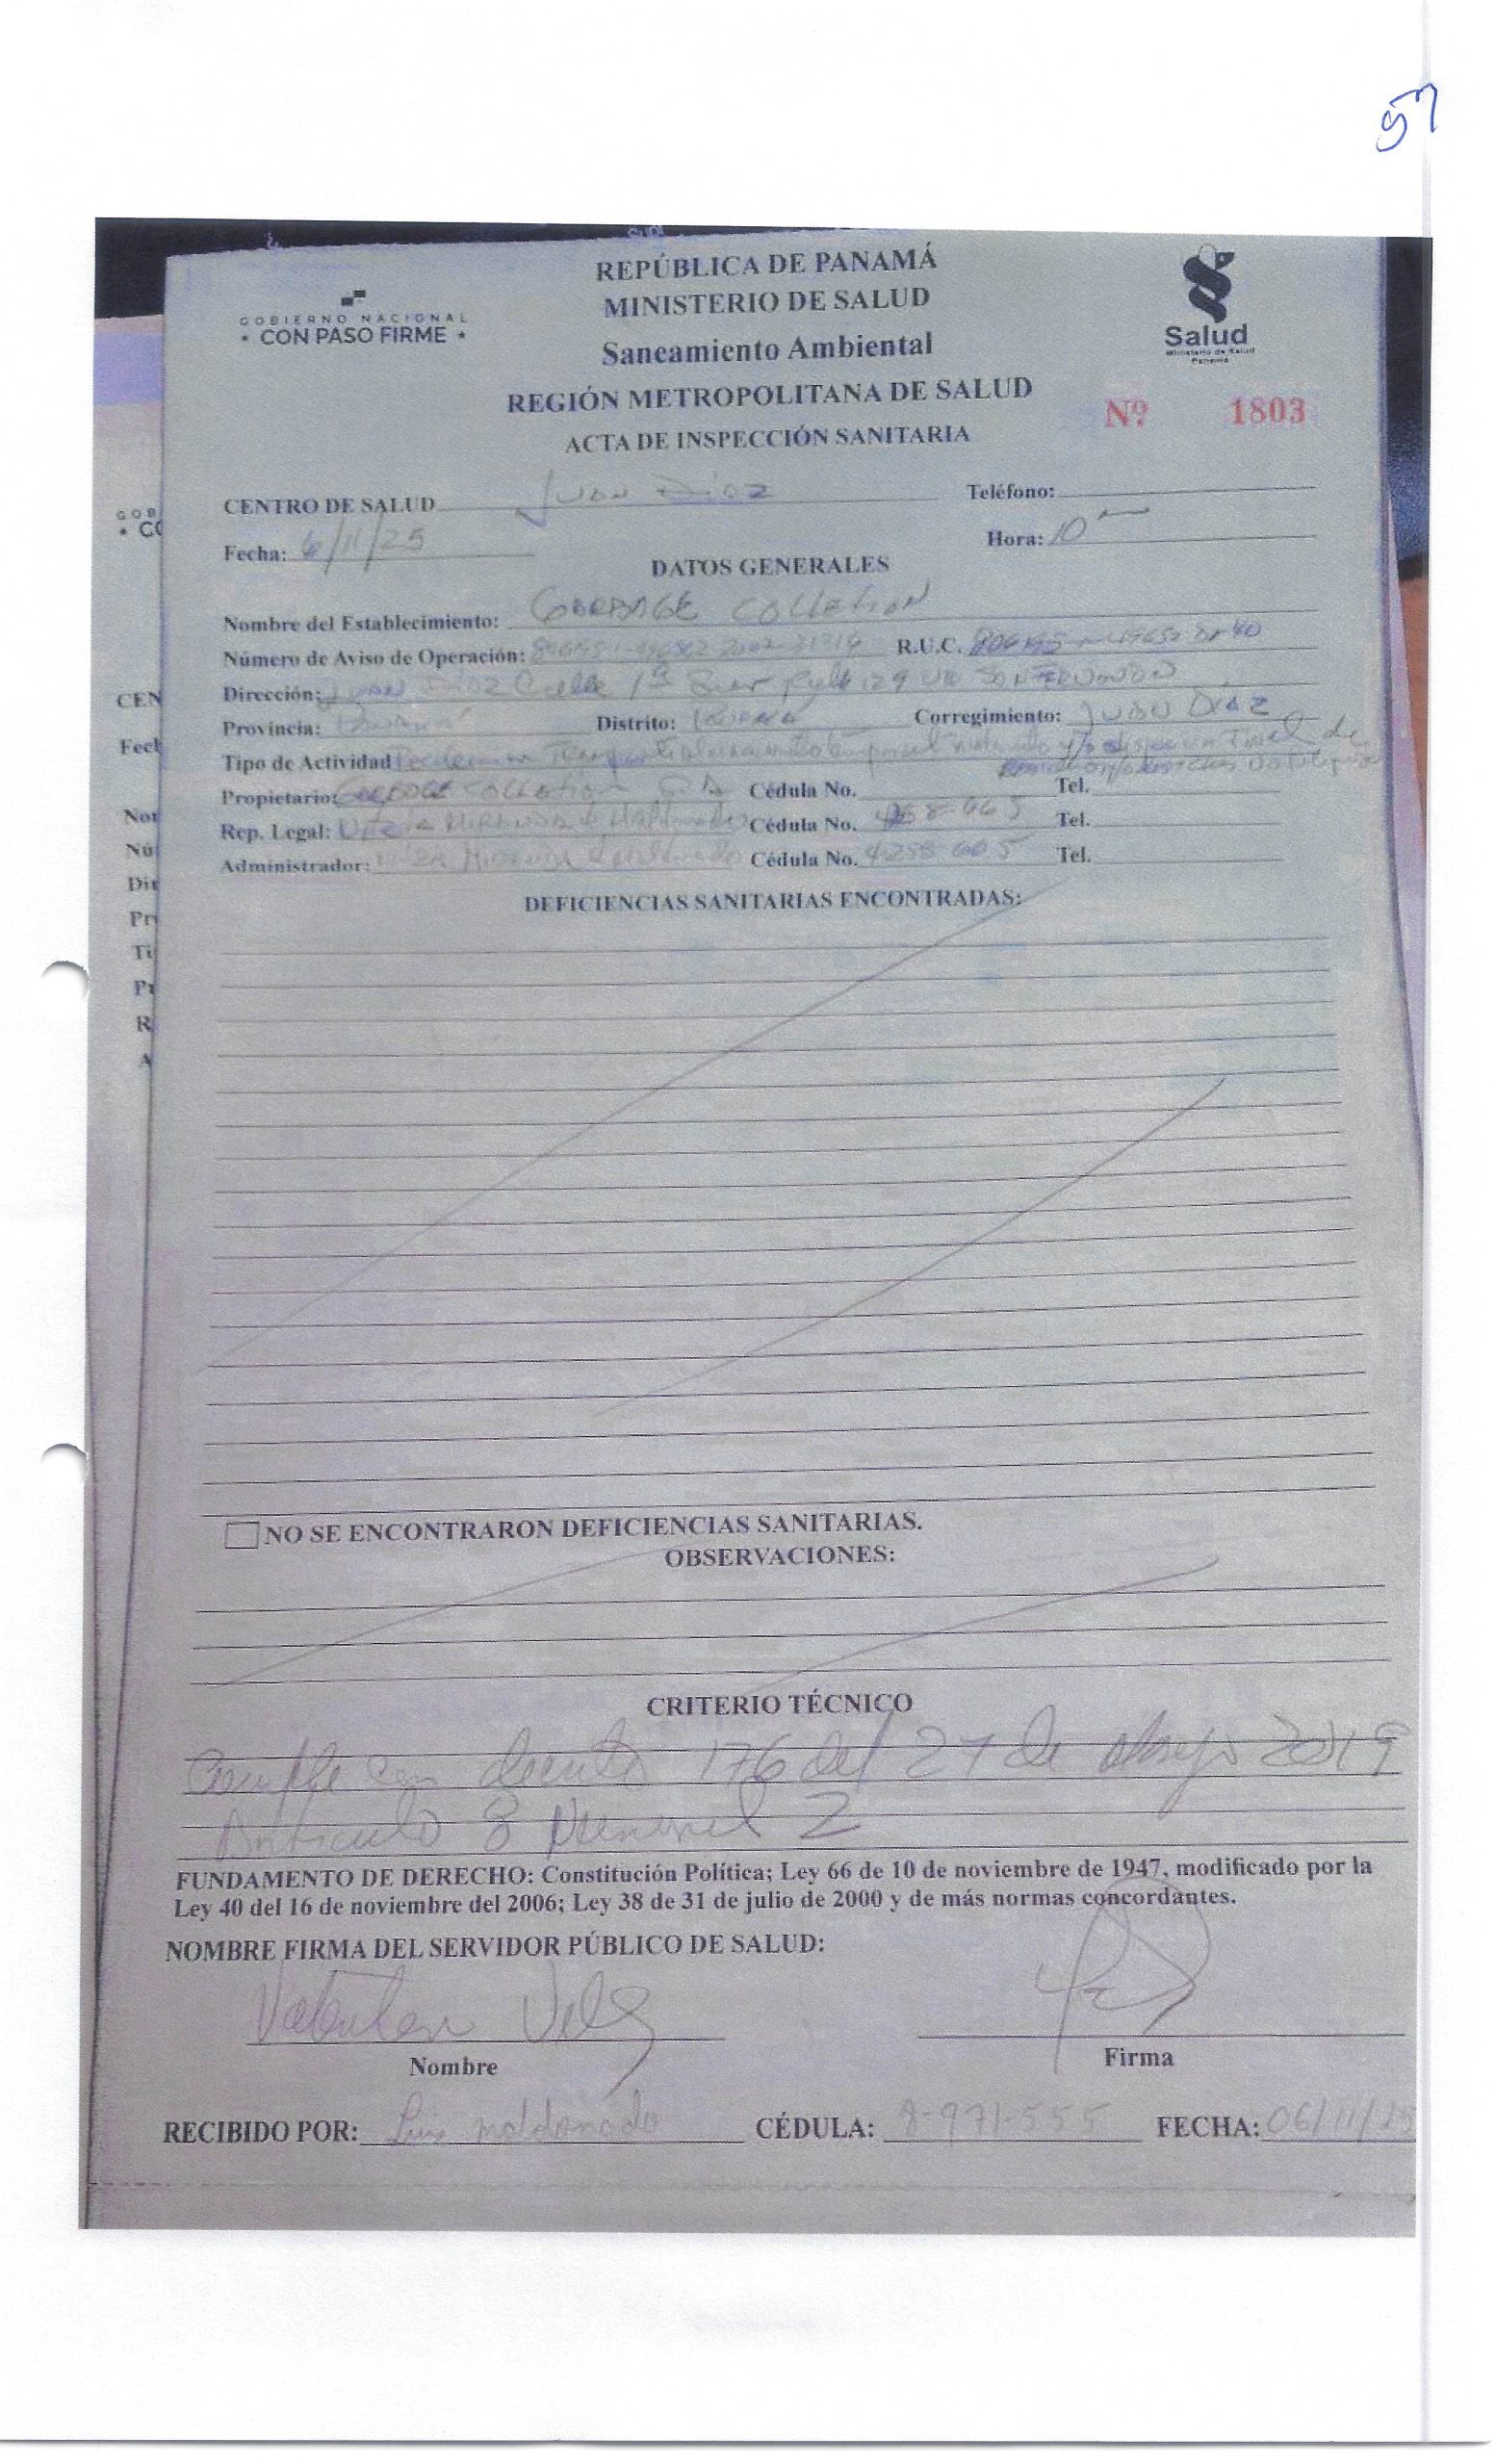 57
REPÚBLICA DE PANAMÁ
MINISTERIO DE SALUD
Saneamiento Ambiental
REGIÓN METROPOLITANA DE SALUD
ACTA DE INSPECCIÓN SANITARIA
GOBIERNO NACIONAL
* CON PASO FIRME *
Salud
Ministerio de Salud
Panamá
Nº 1803
CENTRO DE SALUD Juan Diaz Teléfono:
Fecha: 6/11/25 Hora: 10
DATOS GENERALES
Nombre del Establecimiento: GARBAGE COLLETION
Número de Aviso de Operación: R.U.C.
Dirección: JUAN DIAZ Calle
Provincia: Panamá Distrito: Panama Corregimiento: JUAN DIAZ
Tipo de Actividad
Propietario: GARBAGE COLLETION S.A Cédula No. Tel.
Rep. Legal: MIRANDA Maldonado Cédula No. Tel.
Administrador: Cédula No. Tel.
DEFICIENCIAS SANITARIAS ENCONTRADAS:
NO SE ENCONTRARON DEFICIENCIAS SANITARIAS.
OBSERVACIONES:
CRITERIO TÉCNICO
Cumple con decreto 176 del 27 de Mayo 2019
Articulo 8 Numeral 2
FUNDAMENTO DE DERECHO: Constitución Política; Ley 66 de 10 de noviembre de 1947, modificado por la
Ley 40 del 16 de noviembre del 2006; Ley 38 de 31 de julio de 2000 y de más normas concordantes.
NOMBRE FIRMA DEL SERVIDOR PÚBLICO DE SALUD:
Nombre Firma
RECIBIDO POR: Luis maldonado CÉDULA: 8-971-555 FECHA: 06/11/25